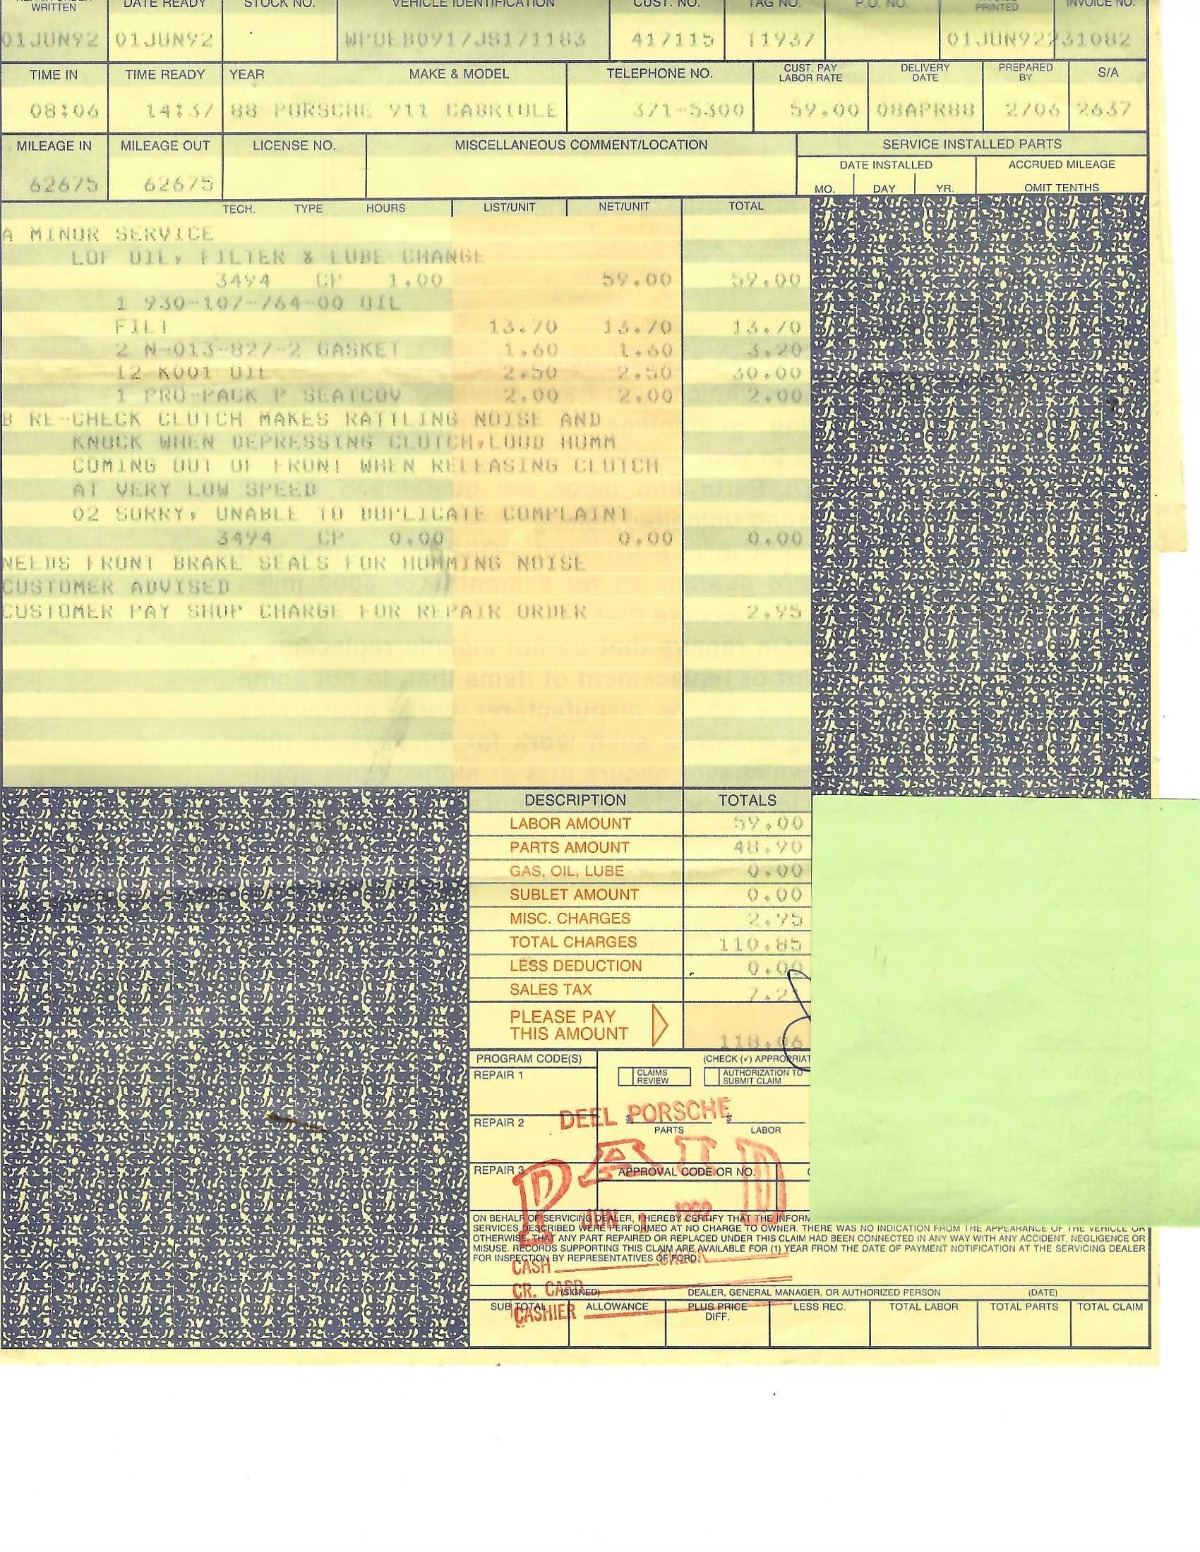 WRITTEN DATE READY STOCK NO. VEHICLE IDENTIFICATION CUST. NO. TAG NO. P.O. NO. PRINTED INVOICE NO.
01JUN92 01JUN92 WP0EB0917JS171183 417115 T1937 01JUN92 231082
TIME IN TIME READY YEAR MAKE & MODEL TELEPHONE NO. CUST. PAY LABOR RATE DELIVERY DATE PREPARED BY S/A
08:06 14:37 88 PORSCHE 911 CABRIOLE 371-5300 59.00 08APR88 2706 2637
MILEAGE IN MILEAGE OUT LICENSE NO. MISCELLANEOUS COMMENT/LOCATION SERVICE INSTALLED PARTS
DATE INSTALLED ACCRUED MILEAGE
62675 62675 MO. DAY YR. OMIT TENTHS
TECH. TYPE HOURS LIST/UNIT NET/UNIT TOTAL
A MINOR SERVICE
LOF OIL, FILTER & LUBE CHANGE
3494 CP 1.00 59.00 59.00
1 930-107-764-00 OIL
FILT 13.70 13.70 13.70
2 N-013-827-2 GASKET 1.60 1.60 3.20
12 K001 OIL 2.50 2.50 30.00
1 PRO-PACK P SEATCOV 2.00 2.00 2.00
B RE-CHECK CLUTCH MAKES RATTLING NOISE AND
KNOCK WHEN DEPRESSING CLUTCH,LOUD HUMM
COMING OUT OF FRONT WHEN RELEASING CLUTCH
AT VERY LOW SPEED
02 SORRY, UNABLE TO DUPLICATE COMPLAINT
3494 CP 0.00 0.00 0.00
NEEDS FRONT BRAKE SEALS FOR HUMMING NOISE
CUSTOMER ADVISED
CUSTOMER PAY SHOP CHARGE FOR REPAIR ORDER 2.95
DESCRIPTION TOTALS
LABOR AMOUNT 59.00
PARTS AMOUNT 48.90
GAS, OIL, LUBE 0.00
SUBLET AMOUNT 0.00
MISC. CHARGES 2.95
TOTAL CHARGES 110.85
LESS DEDUCTION 0.00
SALES TAX 7.21
PLEASE PAY
THIS AMOUNT 118.06
PROGRAM CODE(S) (CHECK (√) APPROPRIAT
REPAIR 1 CLAIMS REVIEW AUTHORIZATION TO SUBMIT CLAIM
DEEL PORSCHE
REPAIR 2 $ PARTS $ LABOR
PAID
REPAIR 3 APPROVAL CODE OR NO.
JUN 1 1992
ON BEHALF OF SERVICING DEALER, I HEREBY CERTIFY THAT THE INFORM
SERVICES DESCRIBED WERE PERFORMED AT NO CHARGE TO OWNER. THERE WAS NO INDICATION FROM THE APPEARANCE OF THE VEHICLE OR
OTHERWISE, THAT ANY PART REPAIRED OR REPLACED UNDER THIS CLAIM HAD BEEN CONNECTED IN ANY WAY WITH ANY ACCIDENT, NEGLIGENCE OR
MISUSE. RECORDS SUPPORTING THIS CLAIM ARE AVAILABLE FOR (1) YEAR FROM THE DATE OF PAYMENT NOTIFICATION AT THE SERVICING DEALER
FOR INSPECTION BY REPRESENTATIVES OF FORD.
CASH
CR. CARD
(SIGNED) DEALER, GENERAL MANAGER, OR AUTHORIZED PERSON (DATE)
CASHIER
SUB TOTAL ALLOWANCE PLUS PRICE DIFF. LESS REC. TOTAL LABOR TOTAL PARTS TOTAL CLAIM